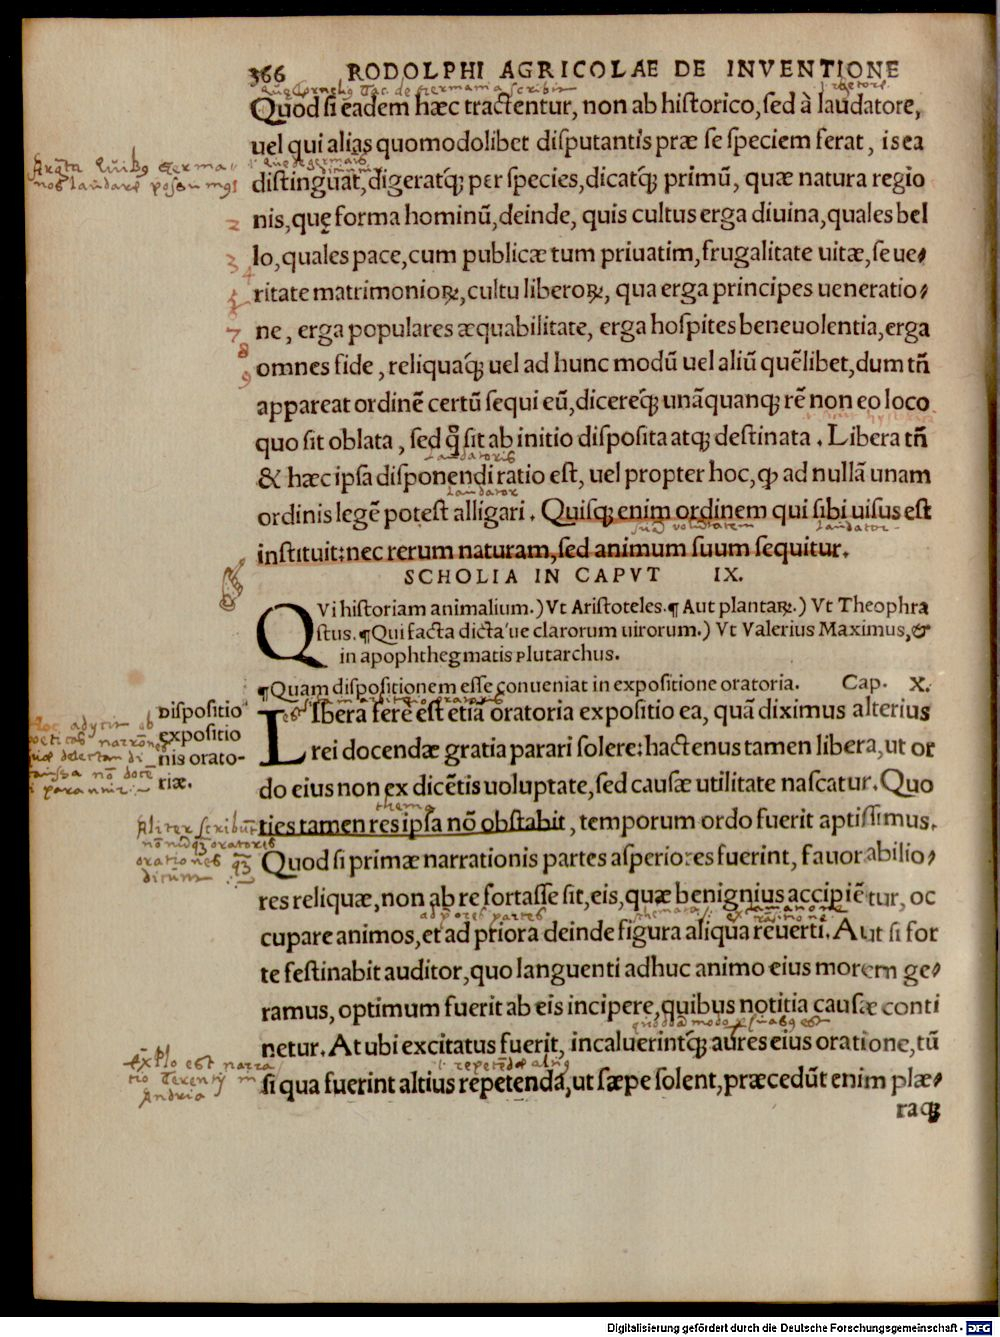 366 RODOLPHI AGRICOLAE DE INVENTIONE
Quę Cornelius Tac. de Germania scribit
Quod si eadem hæc tractentur, non ab historico, sed à laudatore,
uel qui alias quomodolibet disputantis præ se speciem ferat, is ea
distinguat, digeratq́; per species, dicatq́; primũ, quæ natura regio
nis, quę forma hominũ, deinde, quis cultus erga diuina, quales bel
lo, quales pace, cum publicæ tum priuatim, frugalitate uitæ, seue⸗
ritate matrimonioꝝ, cultu liberoꝝ, qua erga principes ueneratio⸗
ne, erga populares æquabilitate, erga hospites beneuolentia, erga
omnes fide, reliquaq́; uel ad hunc modũ uel aliũ quẽlibet, dum tñ
appareat ordinẽ certũ sequi eũ, dicereq́; unãquanq; rẽ non eo loco
quo sit oblata, sed q̃ sit ab initio disposita atq; destinata. Libera tñ
laudatoris
& hæc ipsa disponendi ratio est, uel propter hoc, ꝙ ad nullã unam
laudator
ordinis legẽ potest alligari. Quisq; enim ordinem qui sibi uisus est
suã voluntatem laudator
instituit: nec rerum naturam, sed animum suum sequitur.
2
3
4
7
8
9
SCHOLIA IN CAPVT IX.
QVi historiam animalium.) Vt Aristoteles. ¶ Aut plantaꝝ.) Vt Theophra
stus. ¶ Qui facta dicta'ue clarorum uirorum.) Vt Valerius Maximus, &
in apophthegmatis Plutarchus.
¶ Quam dispositionem esse conueniat in expositione oratoria. Cap. X.
Dispositio
expositio
nis orato-
riæ.
LIbera ferè est etiã oratoria expositio ea, quã diximus alterius
rei docendæ gratia parari solere: hactenus tamen libera, ut or
do eius non ex dicẽtis uoluptate, sed causæ utilitate nascatur. Quo
thema
ties tamen res ipsa nõ obstabit, temporum ordo fuerit aptissimus.
Quod si primæ narrationis partes asperiores fuerint, fauorabilio⸗
res reliquæ, non ab re fortasse sit, eis, quæ benignius accipiẽtur, oc
cupare animos, et ad priora deinde figura aliqua reuerti. Aut si for
te festinabit auditor, quo languenti adhuc animo eius morem ge⸗
ramus, optimum fuerit ab eis incipere, quibus notitia causæ conti
netur. At ubi excitatus fuerit, incaluerintq́; aures eius oratione, tũ
si qua fuerint altius repetenda, ut sæpe solent, præcedũt enim plæ⸗
raq;
Aliter scribũt
oratoris
orationes
dicũm
Exẽplo est narra
tio Terentij in
Andria
Digitalisierung gefördert durch die Deutsche Forschungsgemeinschaft - DFG